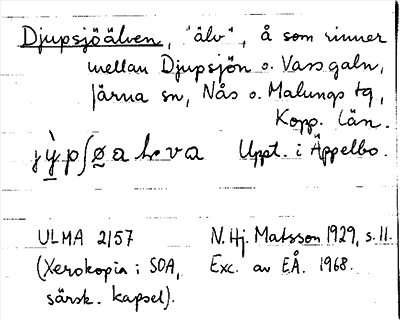 Djupsjöälven, "älv", å som rinner
mellan Djupsjön o. Vassgaln,
Järna sn, Nås o. Malungs tg,
Kopp. län.
Uppt. i Äppelbo.
ULMA 2157 N. Hj. Matsson 1929, s. 11.
(Xerokopia i SOA, Exc. av EÅ. 1968.
särsk. kapsel).